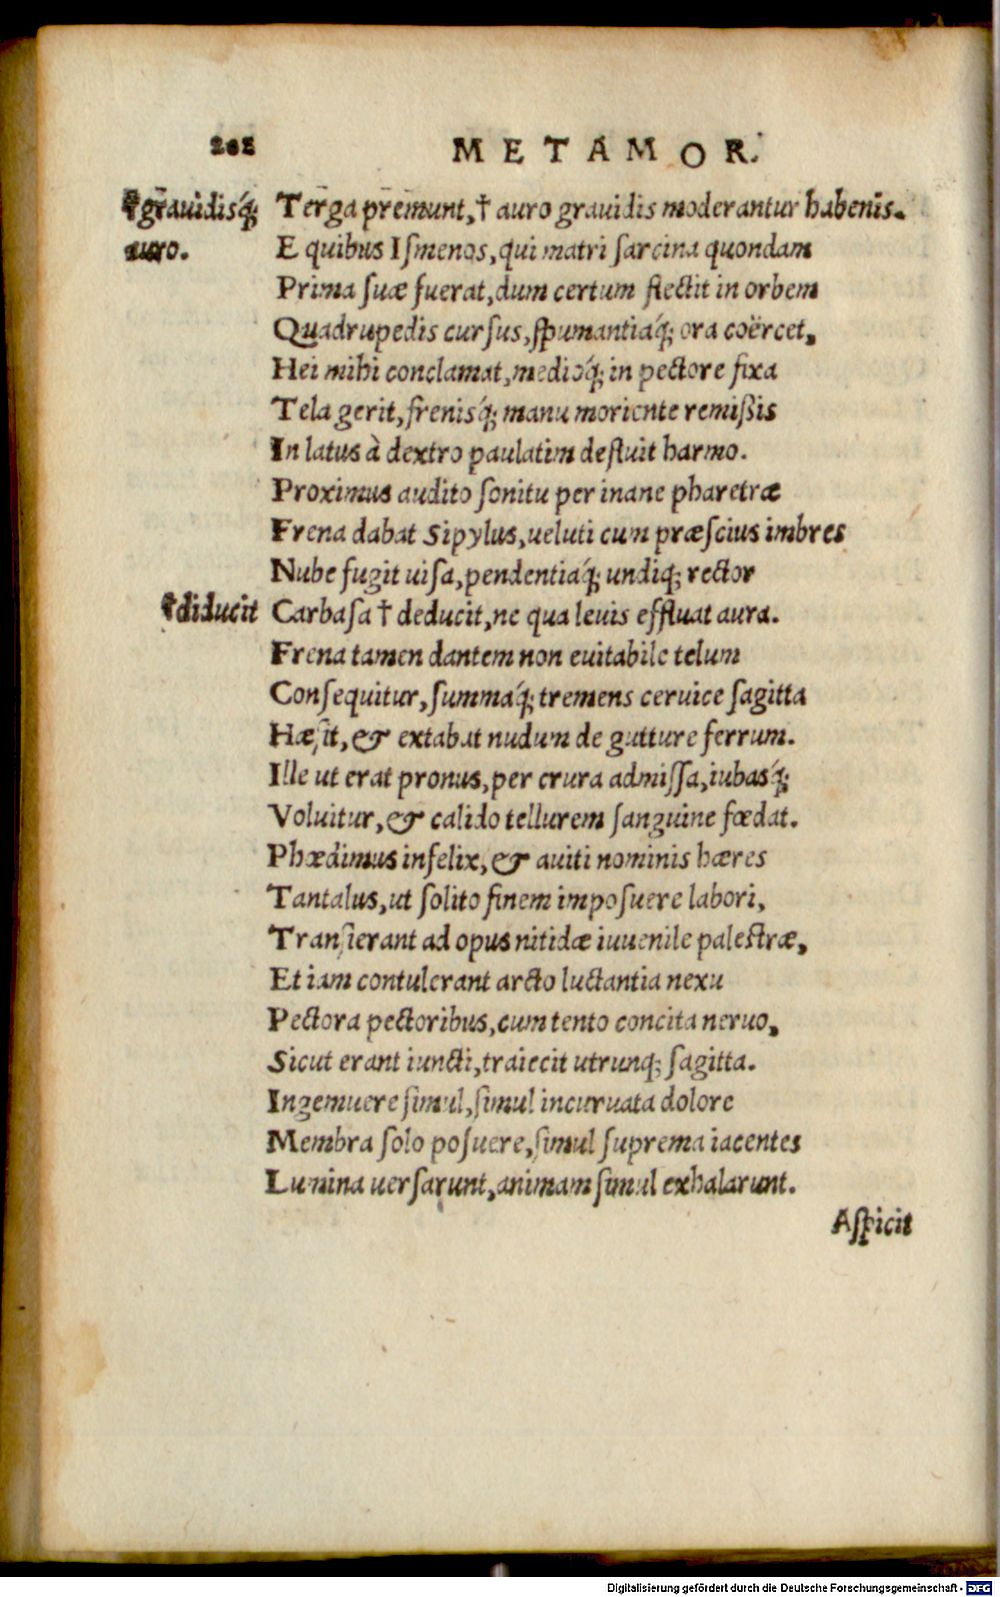 202 METAMOR.
†grauidisq́;
auro.
Terga premunt,† auro grauidis moderantur habenis.
E quibus Iſmenos,qui matri ſarcina quondam
Prima ſuæ fuerat,dum certum flectit in orbem
Quadrupedis curſus,ſpumantiaq́; ora coërcet,
Hei mihi conclamat,medioq́; in pectore fixa
Tela gerit,frenisq́; manu moriente remiſsis
In latus à dextro paulatim defluit harmo.
Proximus audito ſonitu per inane pharetræ
Frena dabat Sipylus,ueluti cum præſcius imbres
Nube fugit uiſa,pendentiaq́; undiq; rector
†diducit Carbaſa † deducit,ne qua leuis effluat aura.
Frena tamen dantem non euitabile telum
Conſequitur,ſummaq́; tremens ceruice ſagitta
Hæſit,& extabat nudum de gutture ferrum.
Ille ut erat pronus,per crura admiſſa,iubasq́;
Voluitur,& calido tellurem ſanguine fœdat.
Phædimus infelix,& auiti nominis hæres
Tantalus,ut ſolito finem impoſuere labori,
Tranſierant ad opus nitidæ iuuenile palestræ,
Et iam contulerant arcto luctantia nexu
Pectora pectoribus,cum tento concita neruo,
Sicut erant iuncti,traiecit utrunq; ſagitta.
Ingemuere ſimul,ſimul incuruata dolore
Membra ſolo poſuere,ſimul ſuprema iacentes
Lumina uerſarunt,animam ſimul exhalarunt.
Aſpicit
Digitalisierung gefördert durch die Deutsche Forschungsgemeinschaft - DFG